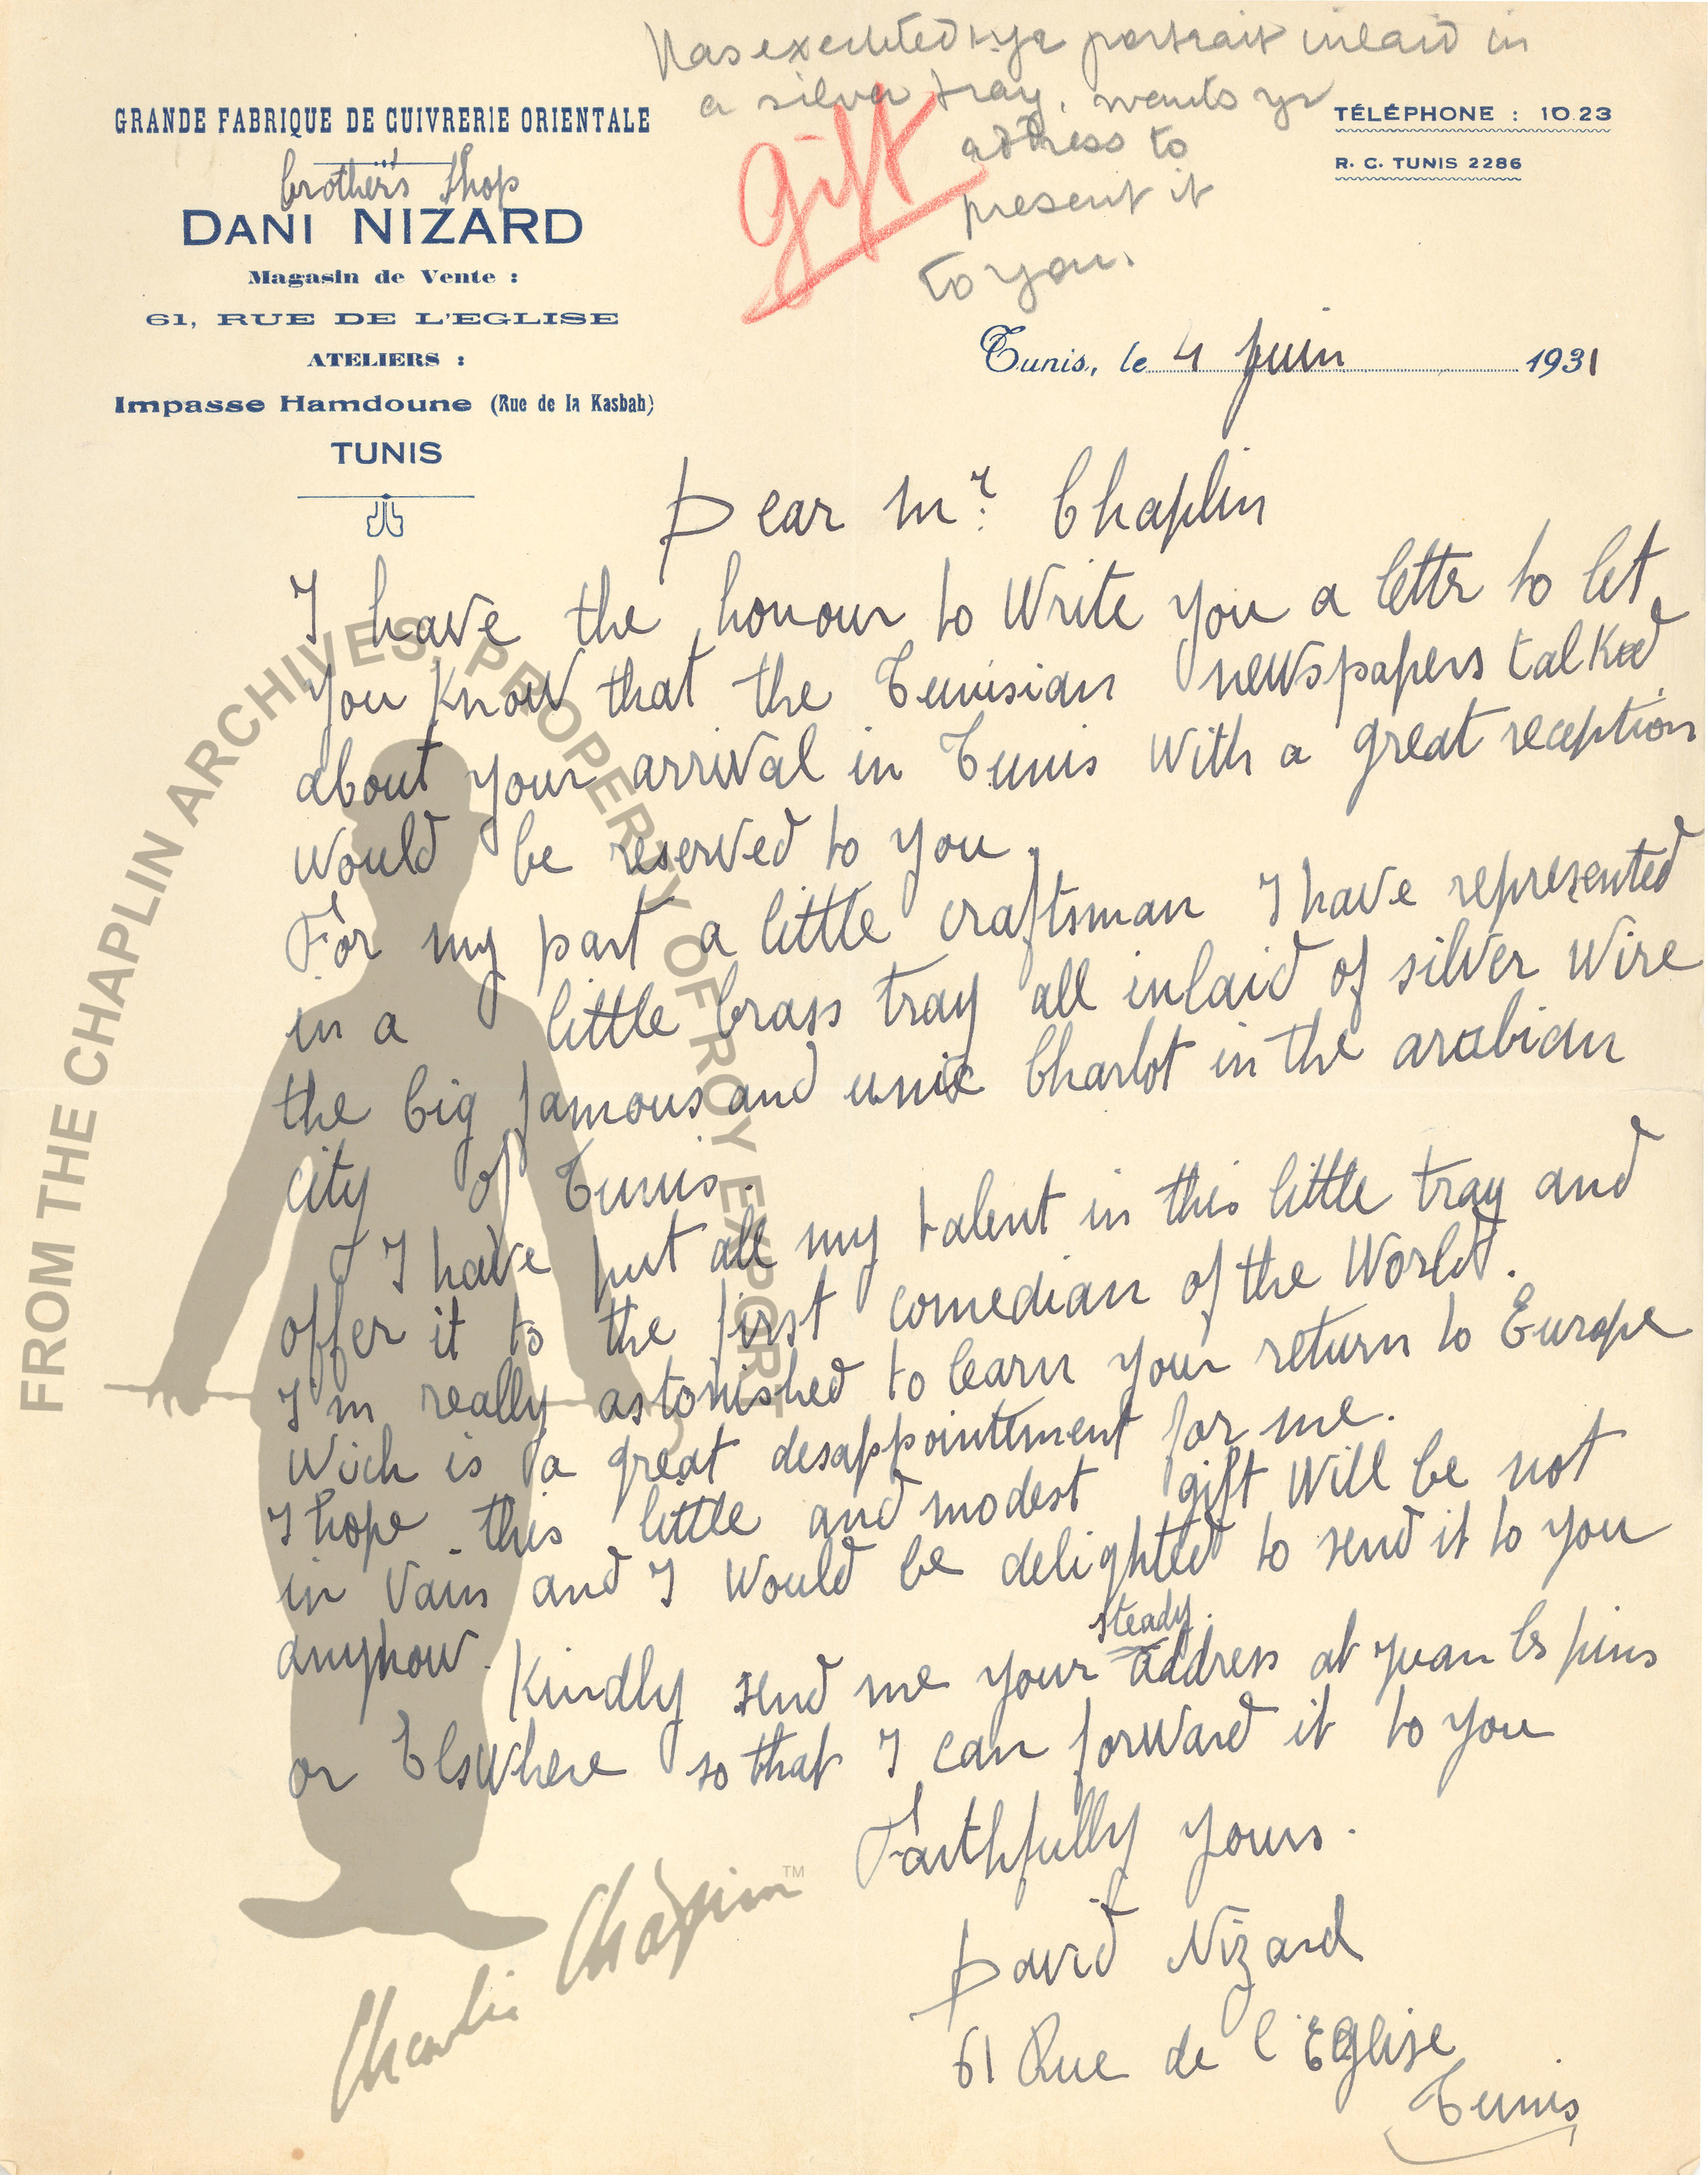 Has executed yr portrait inlaid in
a silver tray, wants yr
address to
present it
to you.
gift
GRANDE FABRIQUE DE CUIVRERIE ORIENTALE
brother's shop
DANI NIZARD
Magasin de Vente :
61, RUE DE L'EGLISE
ATELIERS :
Impasse Hamdoune (Rue de la Kasbah)
TUNIS
TÉLÉPHONE : 10.23
R. C. TUNIS 2286
Tunis, le 4 Juin 1931
Dear Mr. Chaplin
I have the honour to Write you a lettr to let
you know that the Tunisian newspapers talked
about your arrival in Tunis With a great reception
would be reserved to you.
For my part a little craftsman I have represented
in a little brass tray all inlaid of silver Wire
the big famous and unic Charlot in the arabian
city of Tunis.
I have put all my talent in this little tray and
offer it to the first comedian of the World.
I'm really astonished to learn your return to Europe
Wich is a great desappointment for me.
I hope this little and modest gift Will be not
in Vain and I Would be delighted to send it to you
anyhow. Kindly send me your steady address at juan les pins
or Elswhere so that I can forward it to you
Faithfully yours.
David Nizard
61 Rue de l'Eglise
Tunis
FROM THE CHAPLIN ARCHIVES, PROPERTY OF ROY EXPORT
Charlie Chaplin™